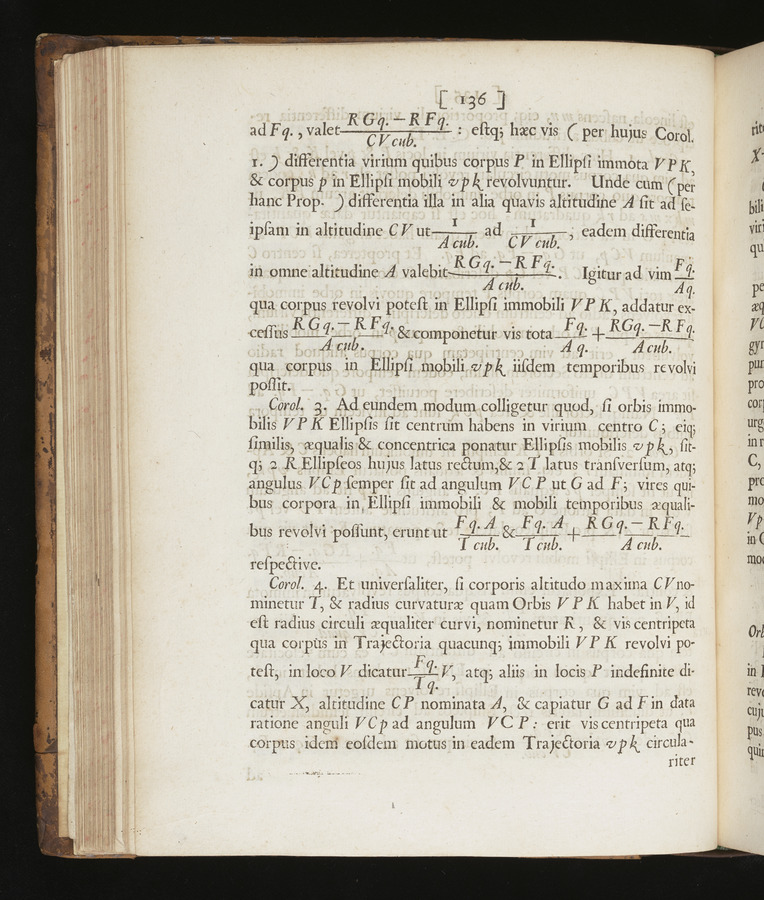 [ 136 ]
ad F q. , valet (R G q. — R F q.)/(C V cub.) : eſtq; hæc vis ( per hujus Corol.
1. ) differentia virium quibus corpus P in Ellipſi immota V P K,
& corpus p in Ellipſi mobili v p k revolvuntur. Unde cum ( per
hanc Prop. ) differentia illa in alia quavis altitudine A ſit ad ſe-
ipſam in altitudine C V ut 1/(A cub.) ad 1/(C V cub.), eadem differentia
in omne altitudine A valebit (R G q. — R F q.)/(A cub.). Igitur ad vim (F q.)/(A q.)
qua corpus revolvi poteſt in Ellipſi immobili V P K, addatur ex-
ceſſus (R G q. — R F q.)/(A cub.) & componetur vis tota (F q.)/(A q.) + (R G q. — R F q.)/(A cub.)
qua corpus in Ellipſi mobili v p k iiſdem temporibus revolvi
poſſit.
Corol. 3. Ad eundem modum colligetur quod, ſi orbis immo-
bilis V P K Ellipſis ſit centrum habens in virium centro C ; eiq;
ſimilis, æqualis & concentrica ponatur Ellipſis mobilis v p k , ſit-
q; 2 R Ellipſeos hujus latus rectum,& 2 T latus tranſverſum, atq;
angulus V C p ſemper ſit ad angulum V C P ut G ad F ; vires qui-
bus corpora in Ellipſi immobili & mobili temporibus æquali-
bus revolvi poſſunt, erunt ut (F q. A)/(T cub.) & (F q. A)/(T cub.) + (R G q. — R F q.)/(A cub.)
reſpective.
Corol. 4. Et univerſaliter, ſi corporis altitudo maxima C V no-
minetur T, & radius curvaturæ quam Orbis V P K habet in V, id
eſt radius circuli æqualiter curvi, nominetur R , & vis centripeta
qua corpus in Trajectoria quacunq; immobili V P K revolvi po-
teſt, in loco V dicatur (F q.)/(T q.) V, atq; aliis in locis P indefinite di-
catur X, altitudine C P nominata A, & capiatur G ad F in data
ratione anguli V C p ad angulum V C P : erit vis centripeta qua
corpus idem eoſdem motus in eadem Trajectoria v p k circula-
riter